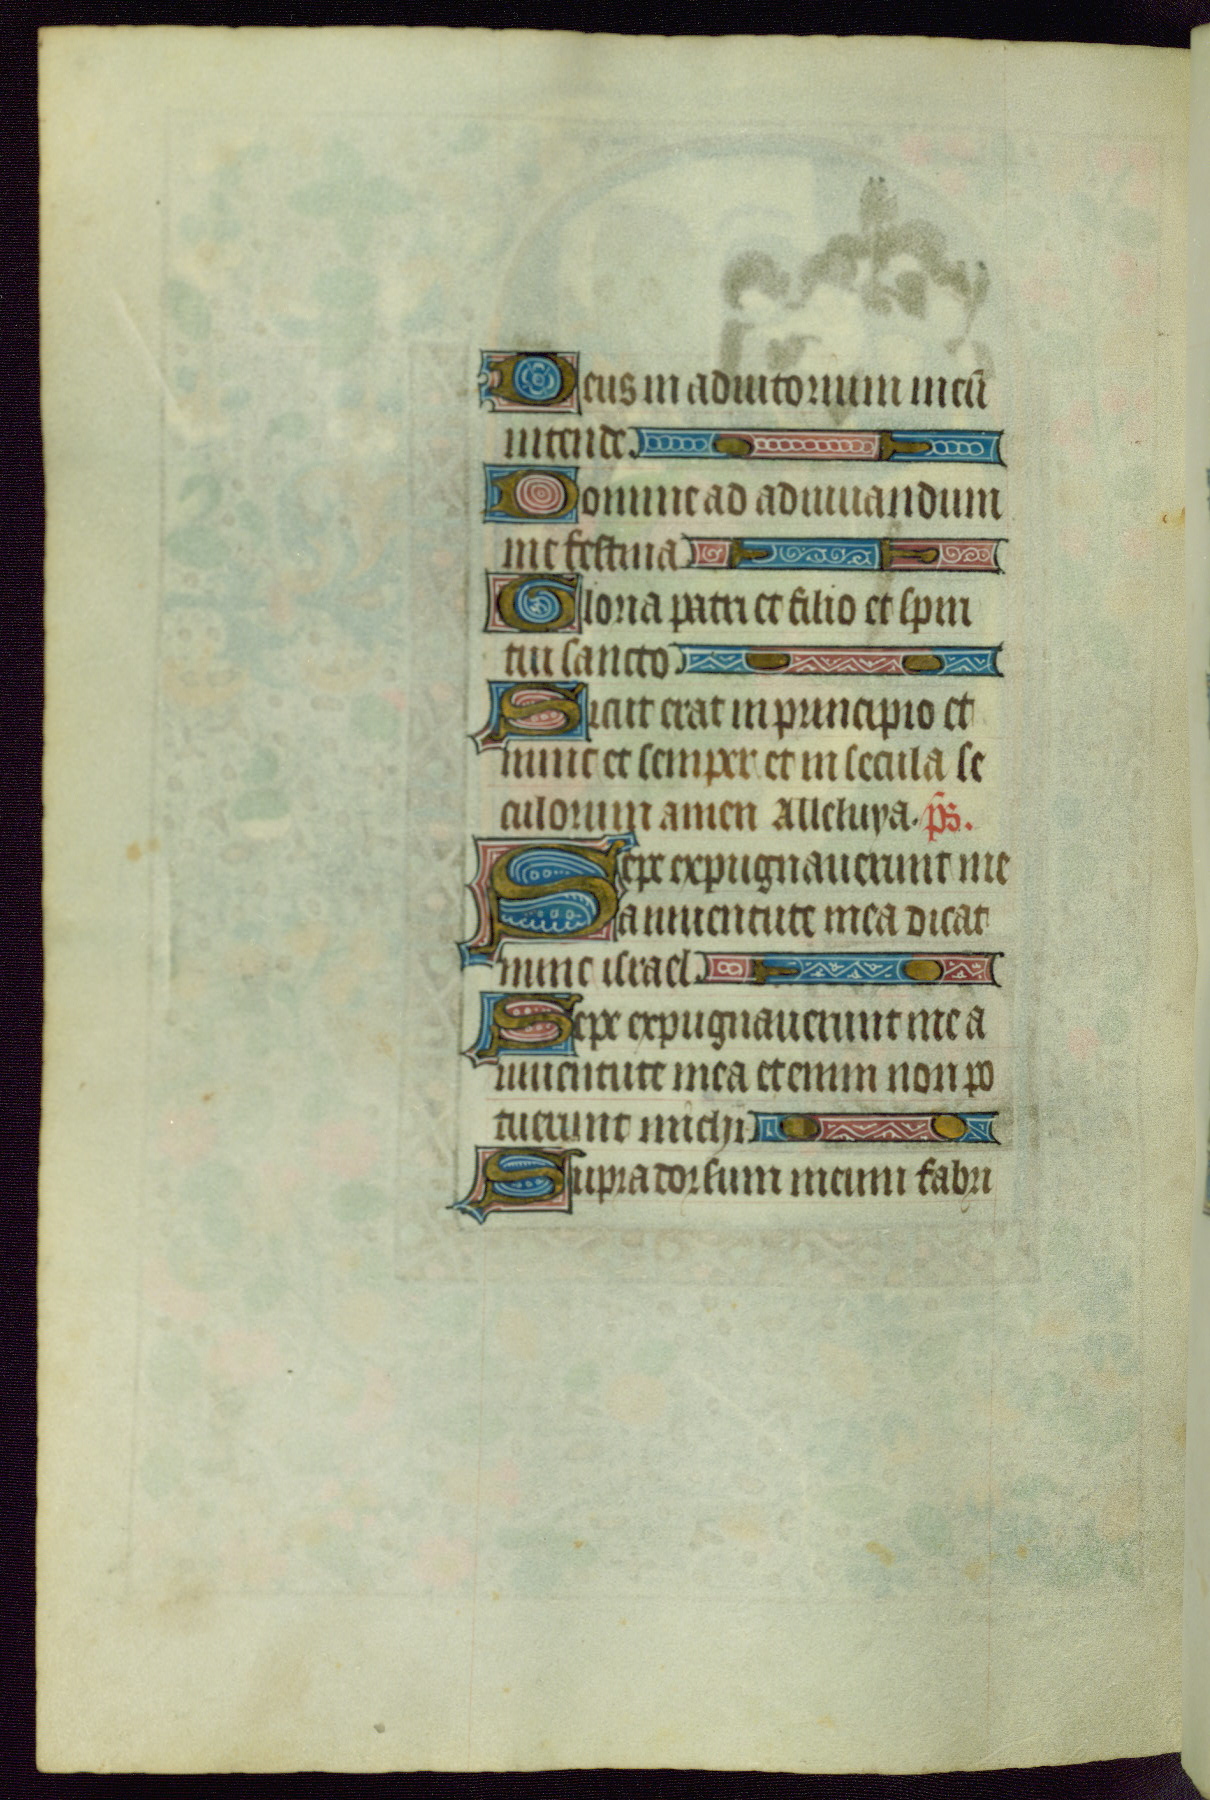 Deus in adiutorium meū
intende.
Domine ad adiuuandum
me festina
Gloria patri et filio et spiri
tui sancto
Sicut erat in principio et
nunc et semper et in secula se
culorum amen Alleluya. ps.
Sepe expugnauerunt me
a iuuentute mea dicat
nunc israel
Sepe expugnauerunt me a
iuuentute mea etenim non po
tuerunt michi
Supra dorsum meum fabri